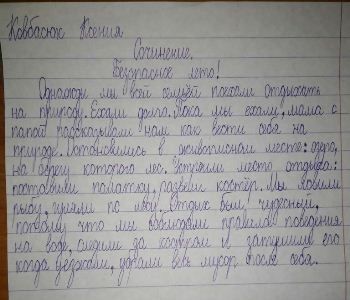 Ковбасюк Ксения
Сочинение.
Безопасное лето!
Однажды мы всей семьёй поехали отдыхать
на природу. Ехали долго. Пока мы ехали, мама с
папой подсказывали нам как вести себя на
природе. Остановились в живописном месте: озеро,
на берегу которого лес. Устроили место отдыха:
поставили палатку, развели костёр. Мы ловили
рыбу, гуляли по лесу. Отдых был чудесным,
потому что мы соблюдали правила поведения
на воде, следили за костром и затушили его
когда уезжали, убрали весь мусор после себя.